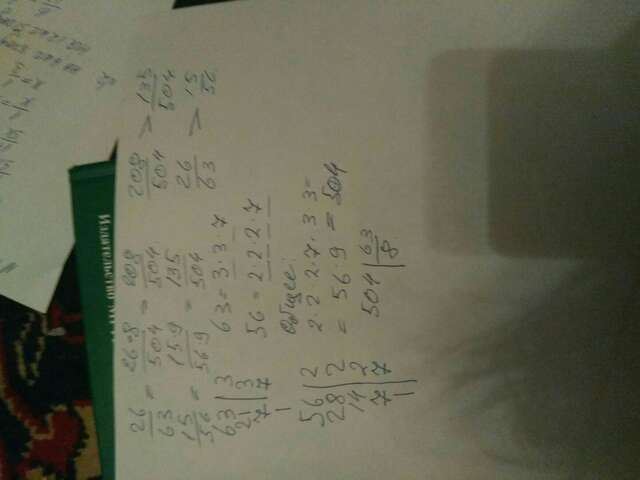 26/63 = 26·8/504 = 208/504
208/504 > 135/504
15/56 = 15·9/56·9 = 135/504
26/63 > 15/56
63 | 3
21 | 3
7 | 7
1
63 = 3·3·7
56 = 2·2·2·7
56 | 2
28 | 2
14 | 2
7 | 7
1
Общее:
2·2·2·7·3·3=
= 56·9 = 504
504 | 63
8
Издательство